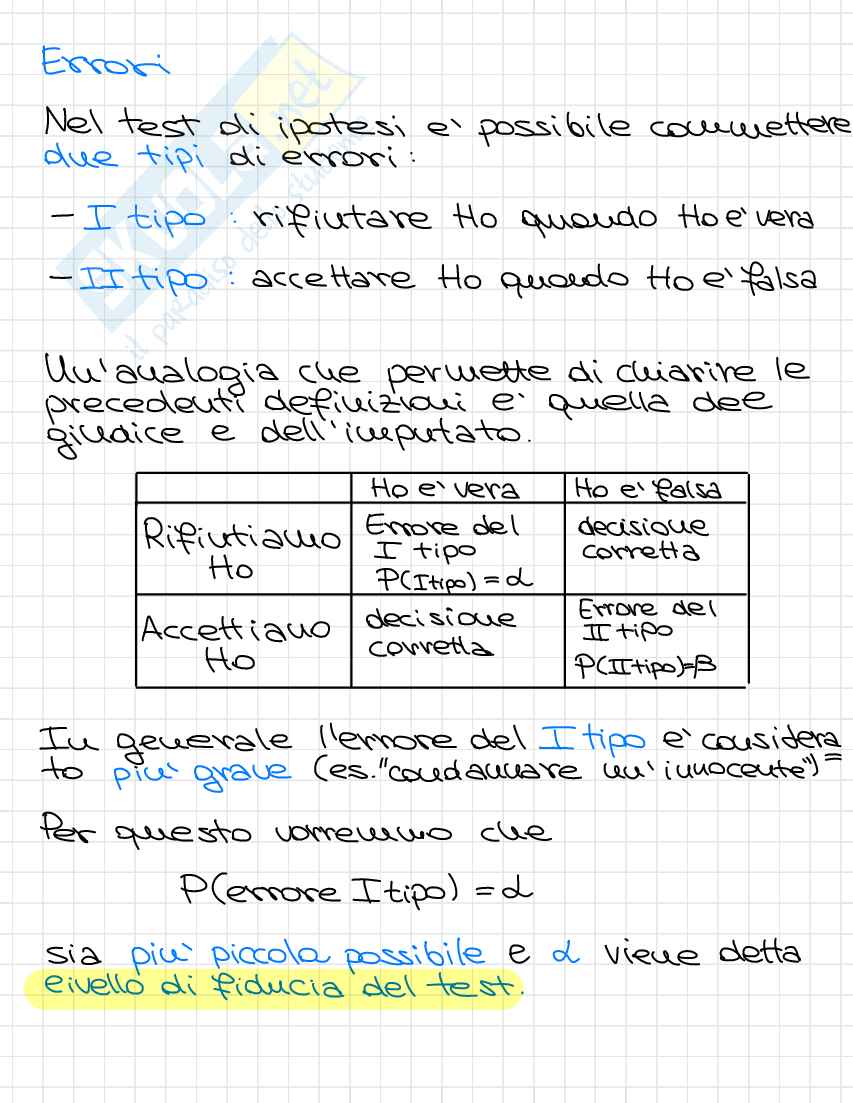 Errori
Nel test di ipotesi e' possibile commettere
due tipi di errori:
- I tipo: rifiutare Ho quando Ho e' vera
- II tipo: accettare Ho quando Ho e' falsa
Un'analogia che permette di chiarire le
precedenti definizioni e' quella del
giudice e dell'imputato.
Ho e' vera Ho e' falsa
Rifiutiamo Ho
Errore del
I tipo
P(I tipo) = α
decisione
corretta
Accettiamo Ho
decisione
corretta
Errore del
II tipo
P(II tipo)=β
In generale l'errore del I tipo e' considera
to piu' grave (es. "condannare un'innocente") =
Per questo vorremmo che
P(errore I tipo) = α
sia piu' piccola possibile e α viene detta
livello di fiducia del test.
SKUOLA.net
il paradiso dello studente